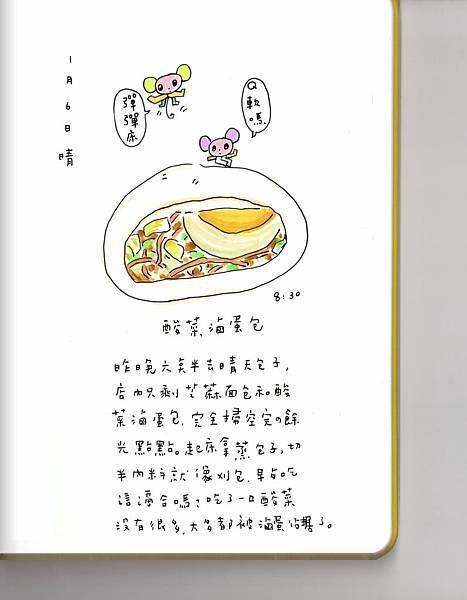 1月6日 晴
彈彈床
Q軟嗎
8:30
酸菜滷蛋包
昨晚六点半去晴天包子,
店內只剩芝蔴面包和酸
菜滷蛋包,完全掃空完の餘
光點點。起床拿蒸包子,切
半內料就像刈包,早点吃
這適合嗎?吃了一口酸菜
沒有很多,大多都被滷蛋佔據了。